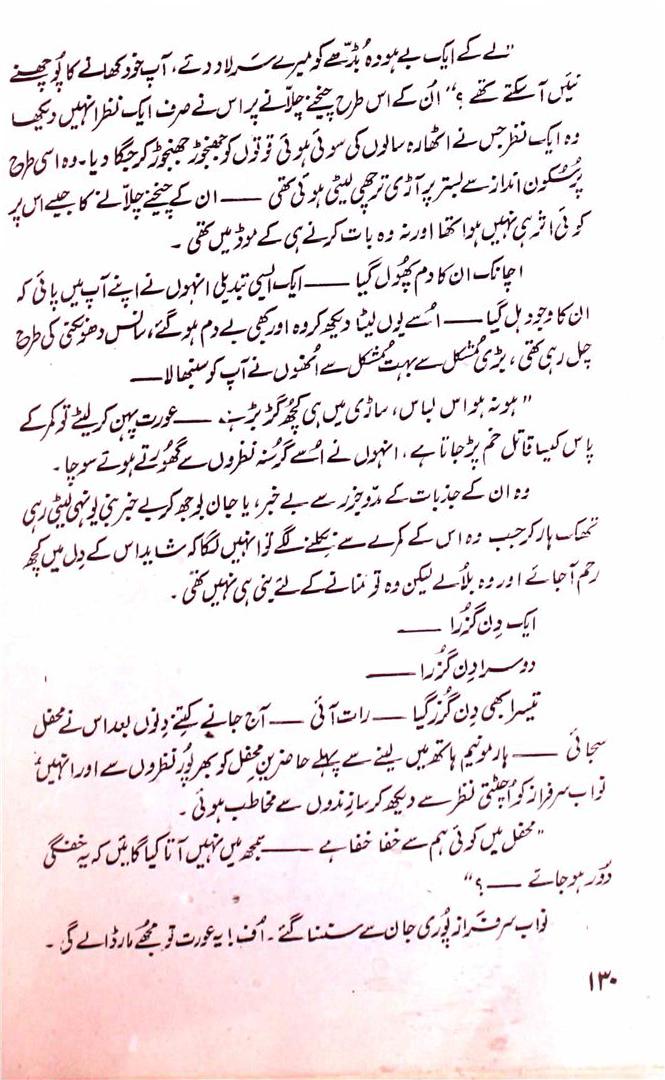 "لے کے ایک بے ہودہ بُڈھے کو میرے سر لاد دئے، آپ خود کھانے کا پُوچھنے
نئیں آ سکتے تھے؟" اُن کے اس طرح چیخنے چلّانے پر اس نے صرف ایک نظر انہیں دیکھا
وہ ایک نظر جس نے اٹھارہ سالوں کی سوئی ہوئی قوتوں کو جھنجوڑ جھنجوڑ کر جگا دیا۔ وہ اسی طرح
پُرسکون انداز سے بستر پر آڑی ترچھی لیٹی ہوئی تھی —— ان کے چیخنے چلّانے کا جیسے اس پر
کوئی اثر ہی نہیں ہوا تھا اور نہ وہ بات کرنے ہی کے موڈ میں تھی ۔
اچانک ان کا دم پھُول گیا —— ایک ایسی تبدیلی انہوں نے اپنے آپ میں پائی کہ
ان کا وجود ہل گیا —— اُسے یوں لیٹا دیکھ کر وہ اور بھی بے دم ہو گئے، سانس دھونکنی کی طرح
چل رہی تھی، بڑی مشکل سے بہت مُشکل سے اُنھوں نے آپ کو سنبھالا ——
"ہو نہ ہو اس لباس، ساڑی میں ہی کچھ گڑبڑ ہے —— عورت پہن کر لیٹے تو کمر کے
پاس کیسا قاتل خم پڑ جاتا ہے، انہوں نے اُسے گرسنہ نظروں سے گھُورتے ہوئے سوچا۔
وہ ان کے جذبات کے مدّ و جزر سے بے خبر، یا جان بوجھ کر بے خبر بنی یونہی لیٹی رہی
تھک ہار کر جب وہ اس کے کمرے سے نکلنے لگے تو انہیں لگا کہ شاید اس کے دِل میں کچھ
رحم آ جائے اور وہ بلا لے لیکن وہ تو ستانے کے لئے بنی ہی نہیں تھی ۔
ایک دِن گزُرا ——
دوسرا دِن گزُرا ——
تیسرا بھی دِن گزُر گیا —— رات آئی —— آج جانے کتنے دِنوں بعد اس نے محفل
سجائی —— ہارمونیم ہاتھ میں لینے سے پہلے حاضرینِ محفل کو بھرپُور نظروں سے اور انہیں،
نواب سرفراز کو اُچٹتی نظر سے دیکھ کر سازندوں سے مخاطب ہوئی ۔
"محفل میں کوئی ہم سے خفا خفا ہے —— سمجھ میں نہیں آتا کیا گائیں کہ یہ خفگی
دُور ہو جائے —— ؟"
نواب سرفراز پُوری جان سے سنسنا گئے۔ اُف! یہ عورت تو مجھے مار ڈالے گی ۔
۱۳۰